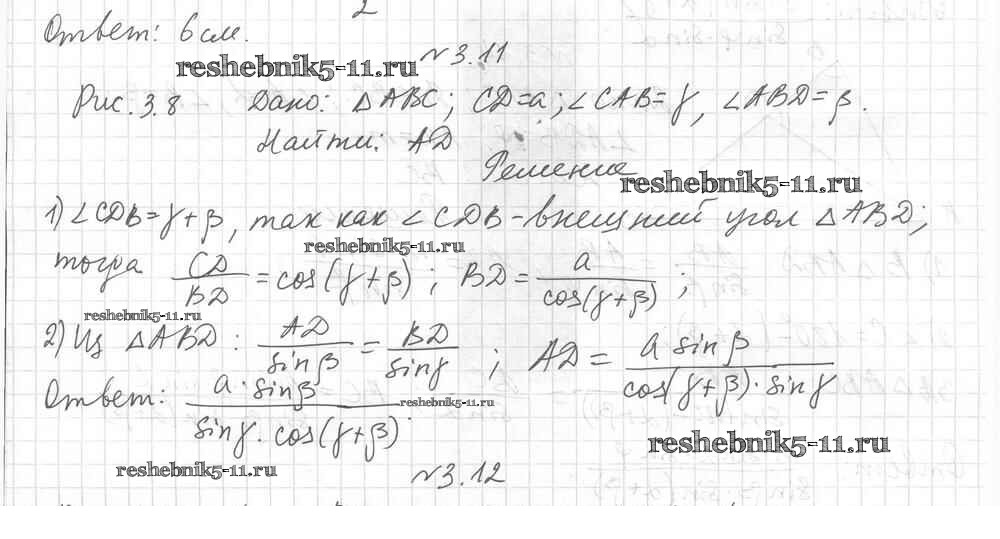 2
Ответ: 6 см.
N 3.11
reshebnik5-11.ru
Рис. 3.8 Дано: △ABC; CD=a; ∠CAB=γ, ∠ABD=β.
Найти: AD
Решение
reshebnik5-11.ru
1) ∠CDB=γ+β, так как ∠CDB-внешний угол △ABD;
reshebnik5-11.ru
тогда CD/BD = cos(γ+β); BD = a/cos(γ+β);
reshebnik5-11.ru
2) Из △ABD: AD/sinβ = BD/sinγ; AD = a sinβ/cos(γ+β)·sinγ
Ответ: a·sinβ/sinγ·cos(γ+β).
reshebnik5-11.ru
reshebnik5-11.ru
reshebnik5-11.ru
N 3.12